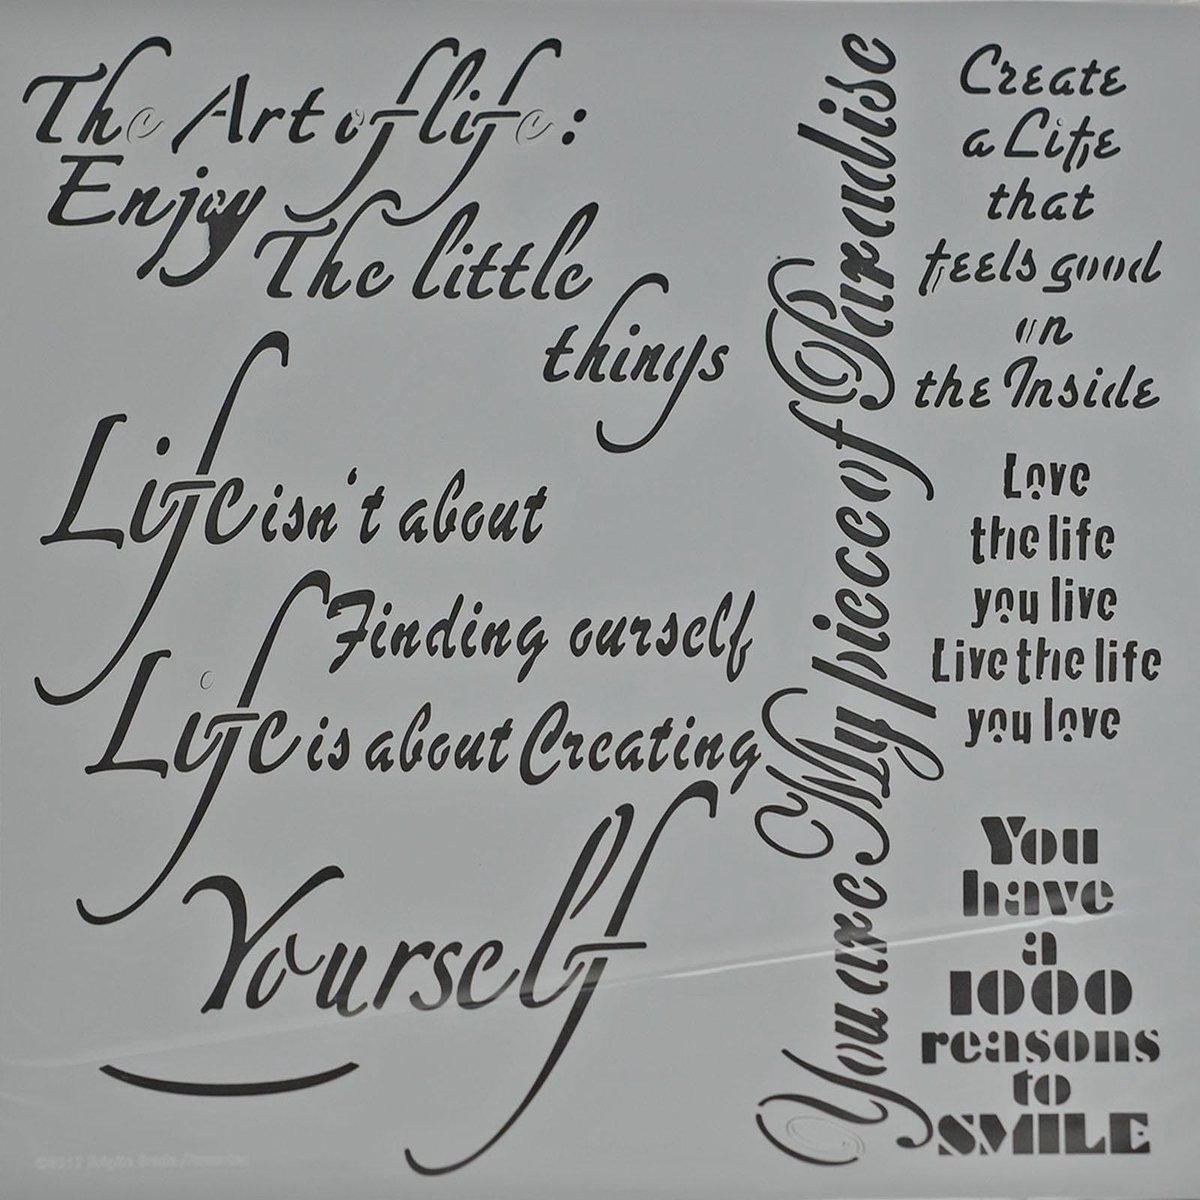 The Art of life:
Enjoy
The little
things
Life isn't about
Finding ourself
Life is about Creating
Yourself
You are My piece of Paradise
Create
a Life
that
feels good
on
the Inside
Love
the life
you live
Live the life
you love
You
have
a
1000
reasons
to
SMILE